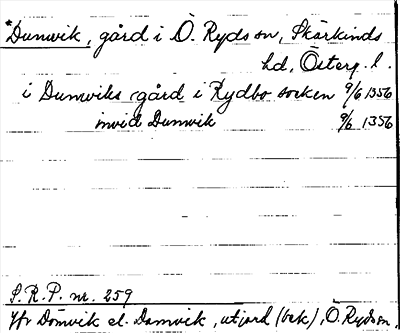 *Dumvik, gård i Ö. Ryds sn, Skärkinds
hd, Österg. l.
i Dumviks gård i Rydbo socken 9/6 1356
invid Dumvik 9/6 1356
S.R.P. nr. 259
Jfr Dömvik el. Damvik, utjord (bek), Ö. Ryds sn.